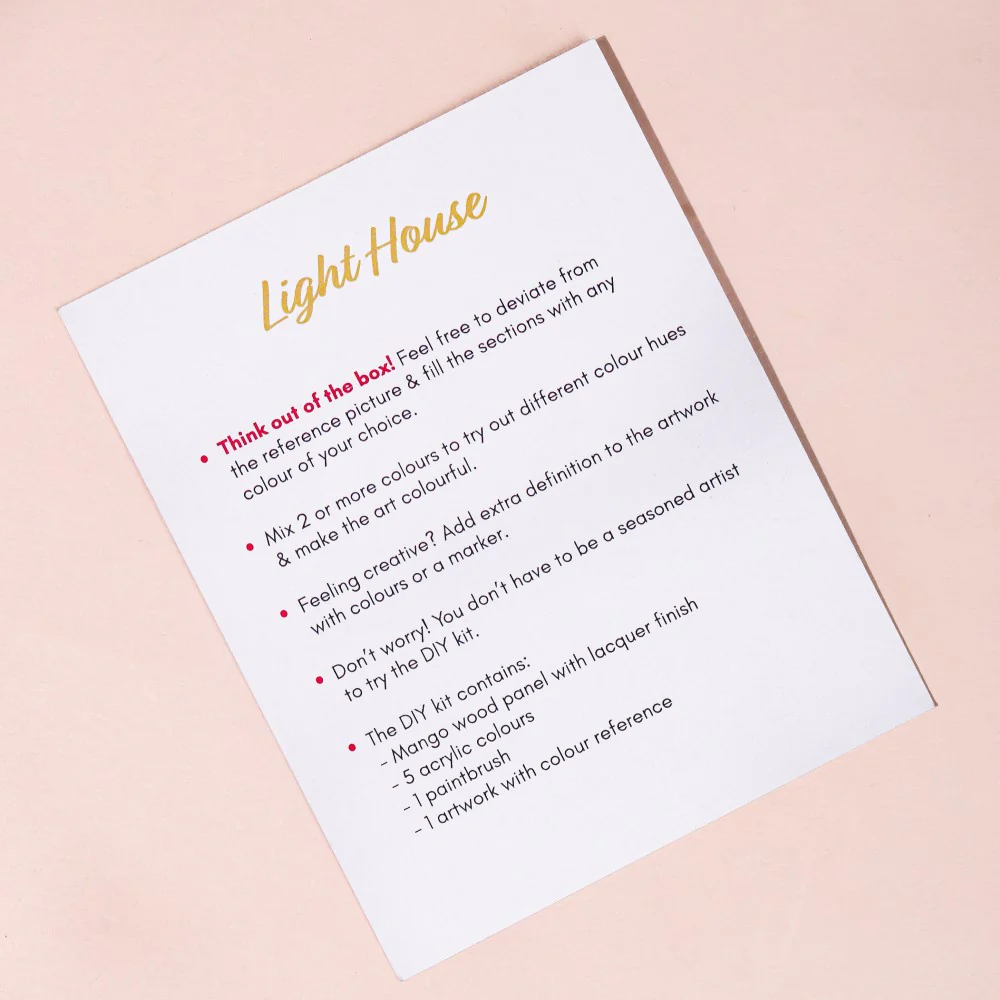 Light House
• Think out of the box! Feel free to deviate from
the reference picture & fill the sections with any
colour of your choice.
• Mix 2 or more colours to try out different colour hues
& make the art colourful.
• Feeling creative? Add extra definition to the artwork
with colours or a marker.
• Don't worry! You don't have to be a seasoned artist
to try the DIY kit.
• The DIY kit contains:
- Mango wood panel with lacquer finish
- 5 acrylic colours
- 1 paintbrush
- 1 artwork with colour reference